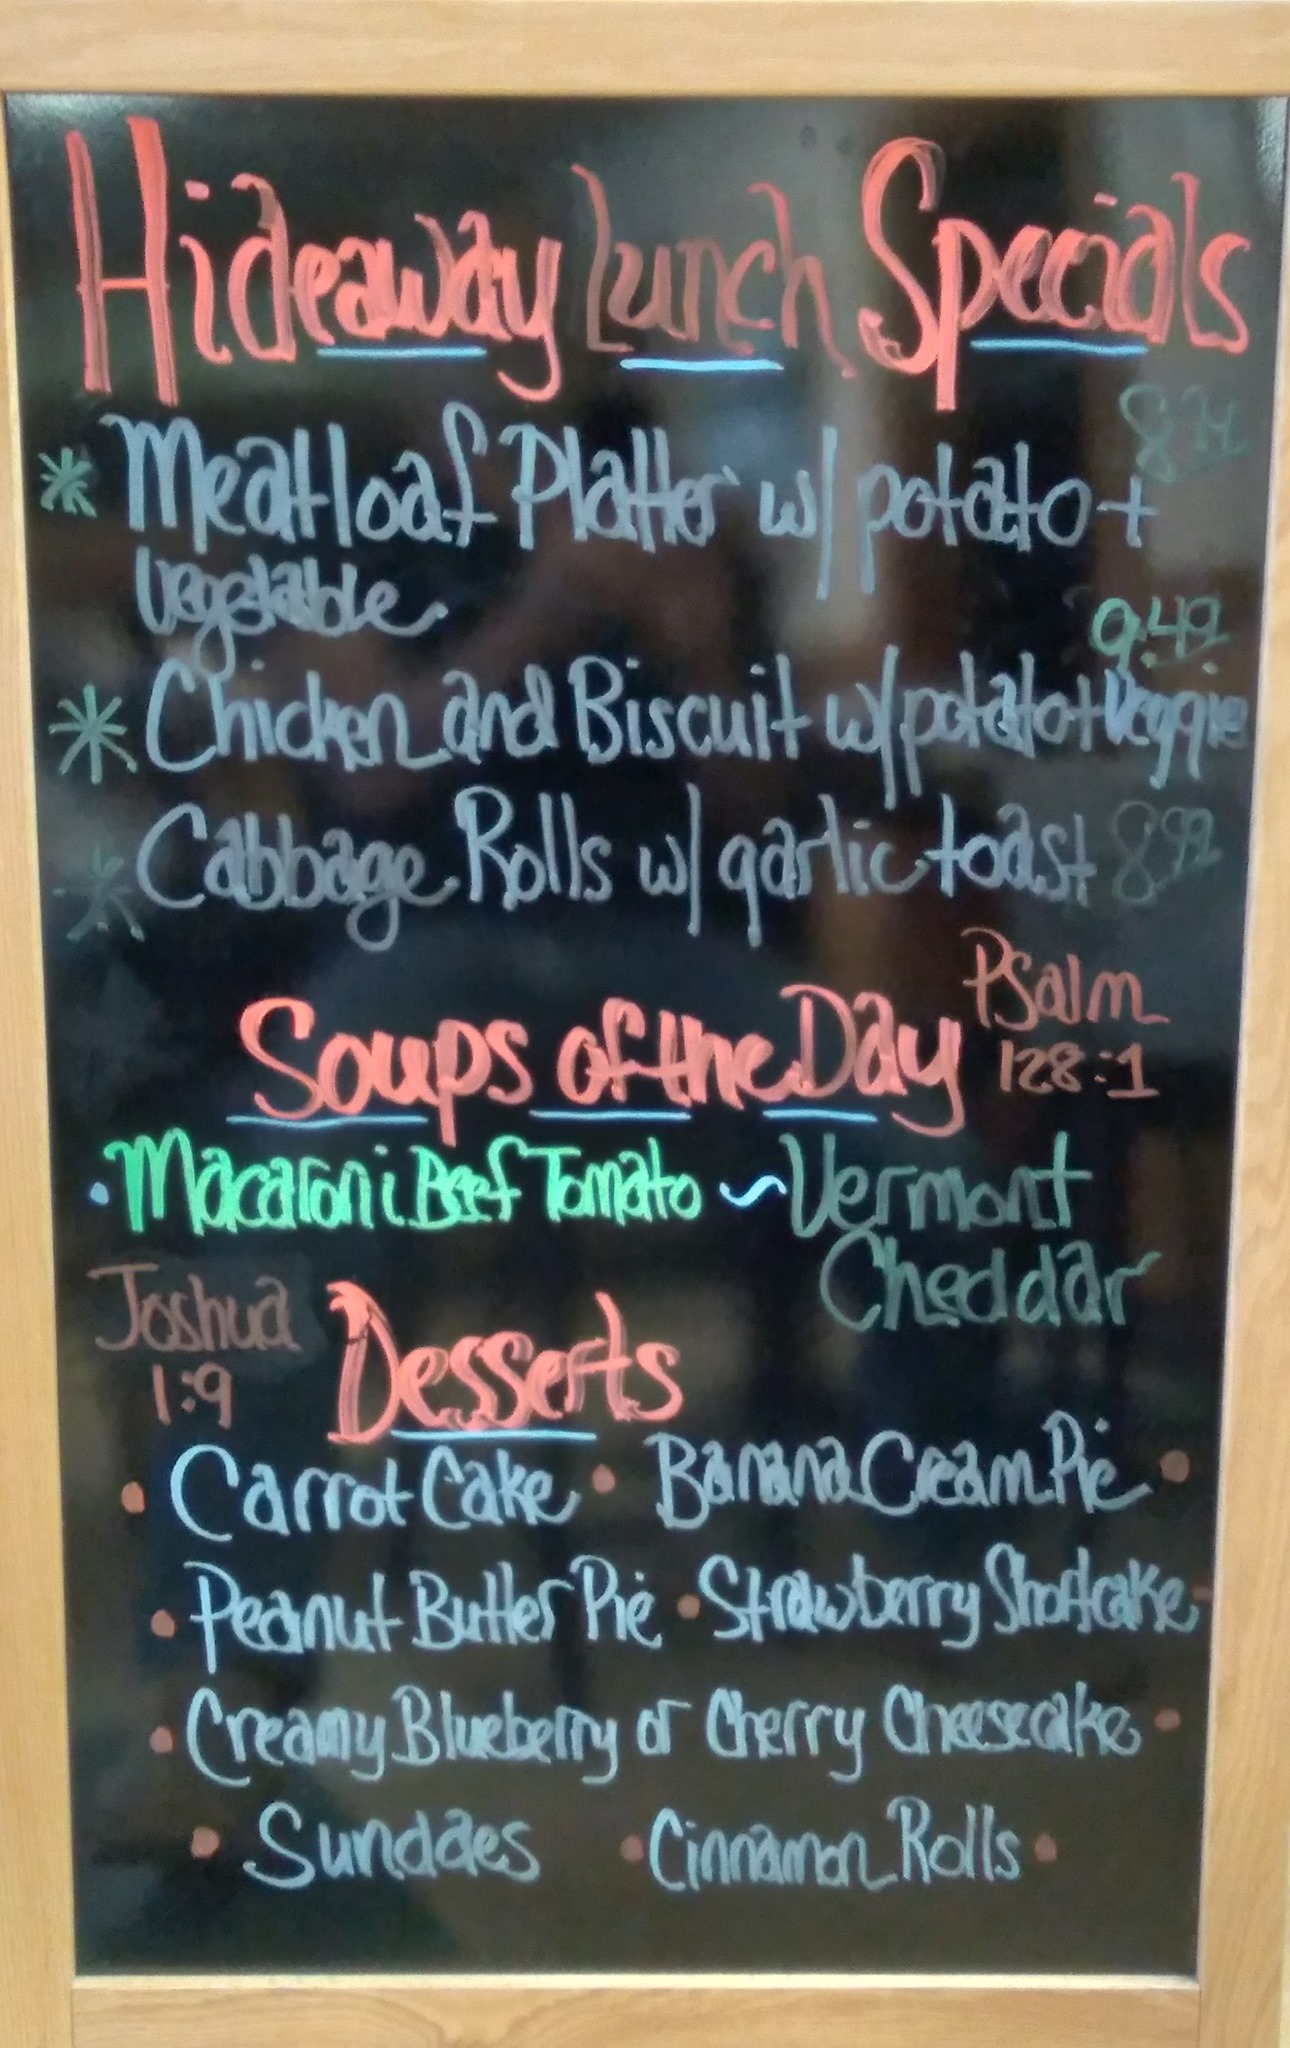 Hideaway Lunch Specials
* Meatloaf Platter w/ potato +
vegetable
9.49
* Chicken and Biscuit w/ potato + Veggie
* Cabbage Rolls w/ garlic toast 8.99
Psalm
128:1
Soups of the Day
• Macaroni Beef Tomato ~ Vermont
Cheddar
Joshua
1:9
Desserts
• Carrot Cake • Banana Cream Pie •
• Peanut Butter Pie • Strawberry Shortcake •
• Creamy Blueberry or Cherry Cheesecake •
• Sundaes • Cinnamon Rolls •